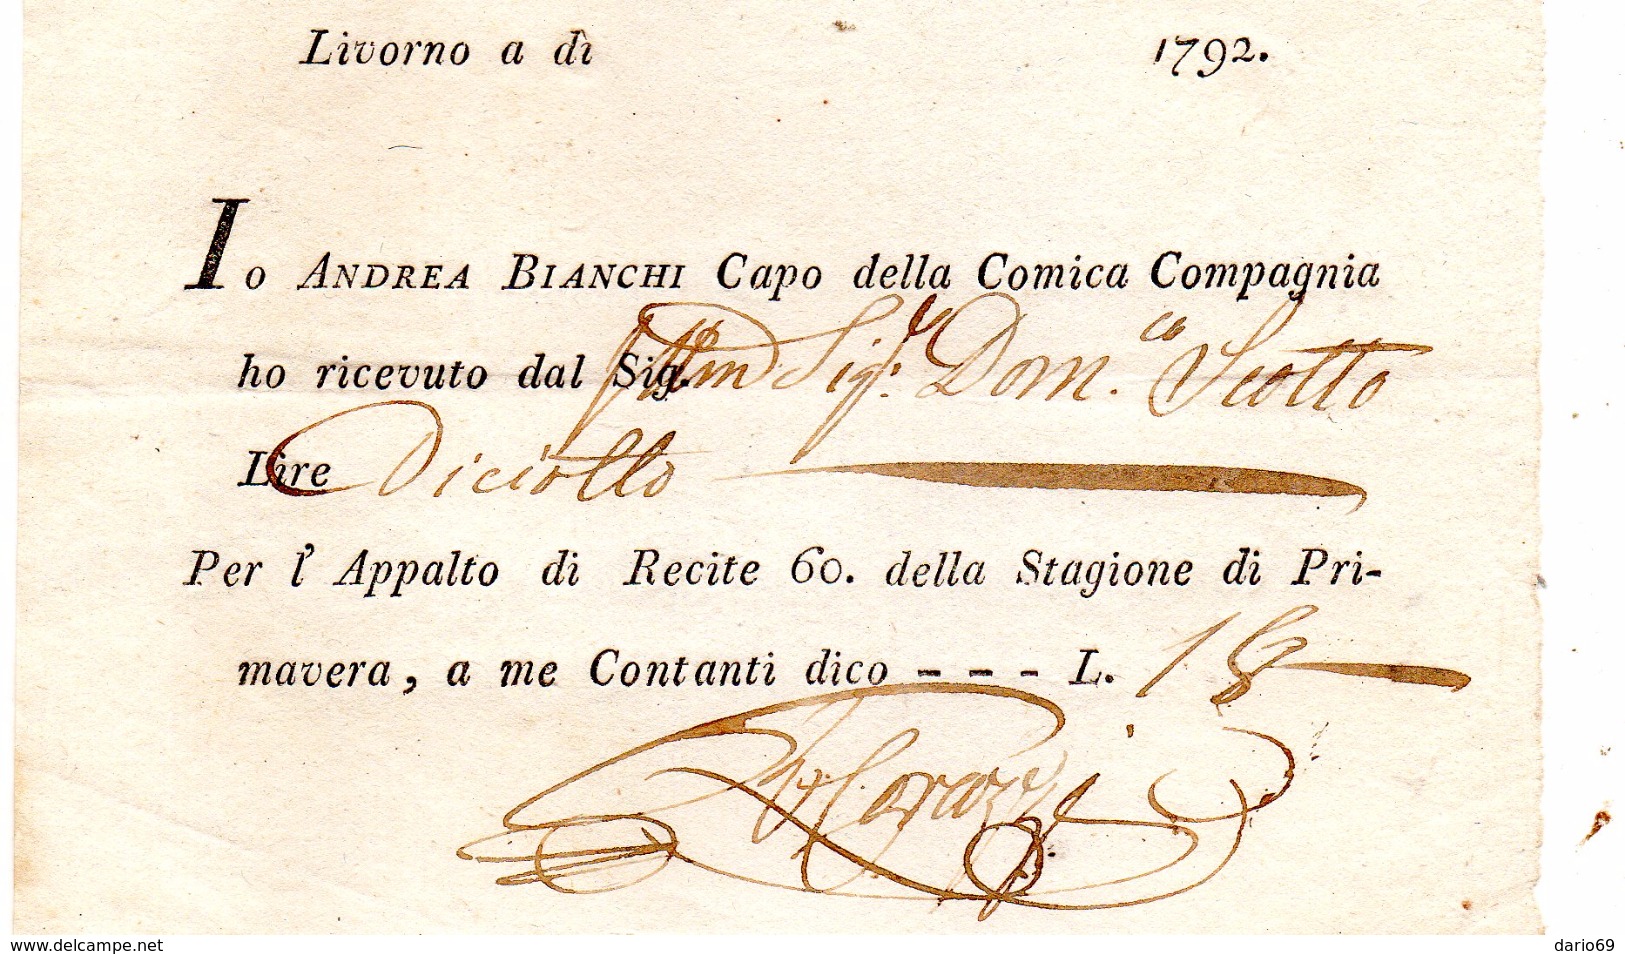 Livorno a dì 1792.
Io ANDREA BIANCHI Capo della Comica Compagnia
ho ricevuto dal Sig. Sig.r Dom.co Scotto
Lire Diciotto
Per l' Appalto di Recite 60. della Stagione di Pri-
mavera, a me Contanti dico - - - L. 18
Corazzi
www.delcampe.net
dario69